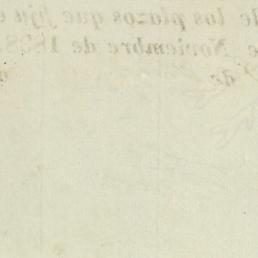 de los plazos que fija e
e Noviembre de 188
de